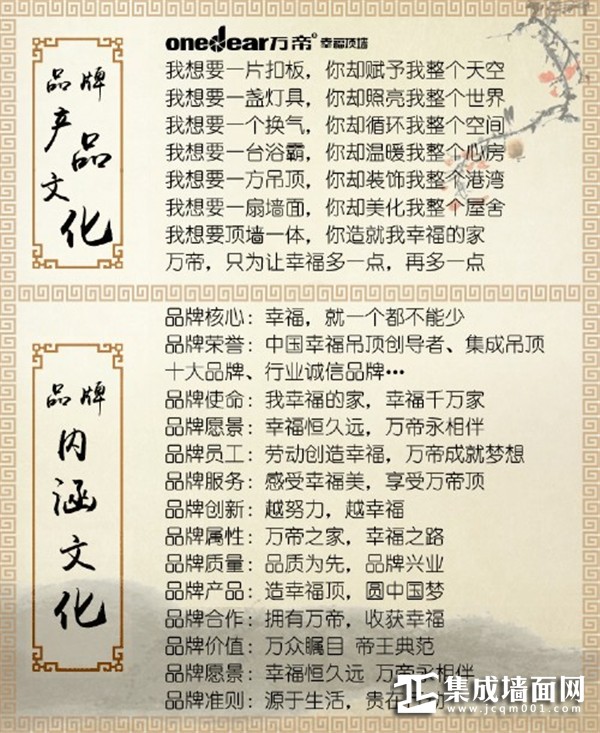 品牌
产品
文化
onedear万帝® 幸福顶墙
我想要一片扣板，你却赋予我整个天空
我想要一盏灯具，你却照亮我整个世界
我想要一个换气，你却循环我整个空间
我想要一台浴霸，你却温暖我整个心房
我想要一方吊顶，你却装饰我整个港湾
我想要一扇墙面，你却美化我整个屋舍
我想要顶墙一体，你造就我幸福的家
万帝，只为让幸福多一点，再多一点
品牌
内涵文化
品牌核心：幸福，就一个都不能少
品牌荣誉：中国幸福吊顶创导者、集成吊顶
十大品牌、行业诚信品牌…
品牌使命：我幸福的家，幸福千万家
品牌愿景：幸福恒久远，万帝永相伴
品牌员工：劳动创造幸福，万帝成就梦想
品牌服务：感受幸福美，享受万帝顶
品牌创新：越努力，越幸福
品牌属性：万帝之家，幸福之路
品牌质量：品质为先，品牌兴业
品牌产品：造幸福顶，圆中国梦
品牌合作：拥有万帝，收获幸福
品牌价值：万众瞩目 帝王典范
品牌愿景：幸福恒久远 万帝永相伴
品牌准则：源于生活，贵在
集成墙面网
www.jcqm001.com